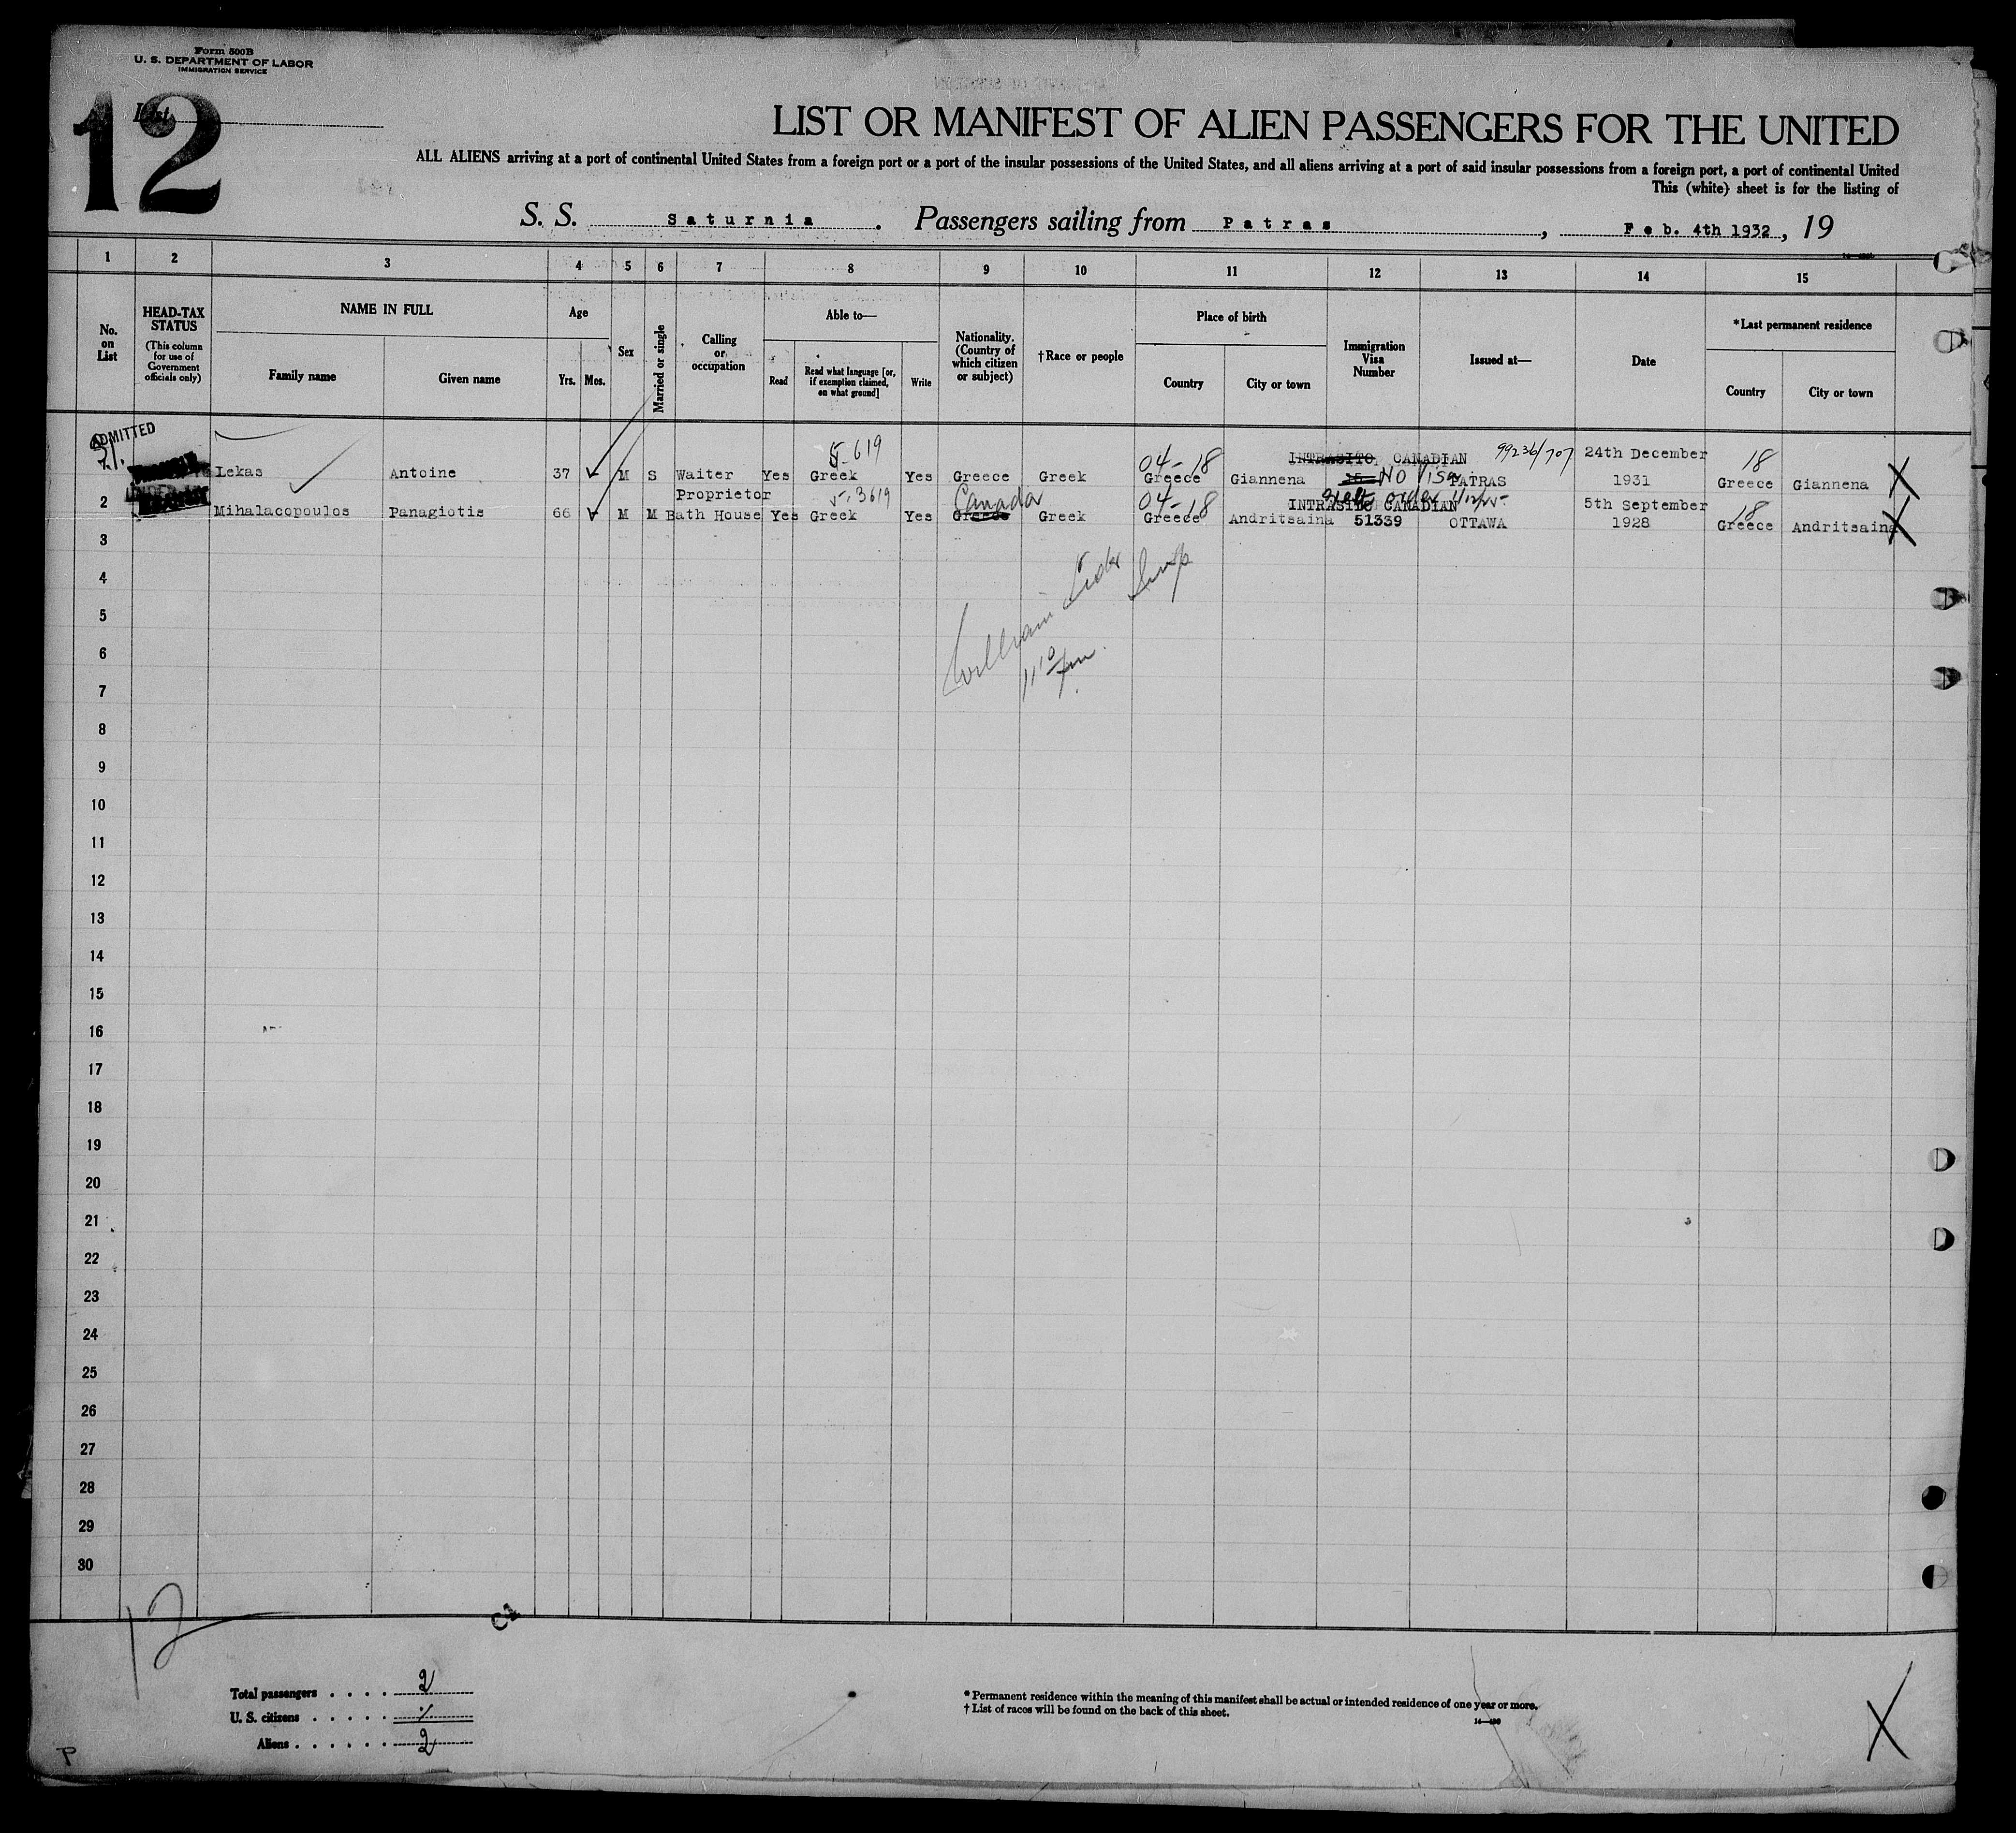 Form 500B
U. S. DEPARTMENT OF LABOR
IMMIGRATION SERVICE
List
12
LIST OR MANIFEST OF ALIEN PASSENGERS FOR THE UNITED
ALL ALIENS arriving at a port of continental United States from a foreign port or a port of the insular possessions of the United States, and all aliens arriving at a port of said insular possessions from a foreign port, a port of continental United
This (white) sheet is for the listing of
S. S. Saturnia. Passengers sailing from Patras, Feb. 4th 1932, 19
1 2 3 4 5 6 7 8 9 10 11 12 13 14 15
No. on List
HEAD-TAX STATUS
(This column for use of Government officials only)
NAME IN FULL
Family name
Given name
Age
Yrs. Mos.
Sex
Married or single
Calling or occupation
Able to—
Read
Read what language [or, if exemption claimed, on what ground]
Write
Nationality. (Country of which citizen or subject)
†Race or people
Place of birth
Country
City or town
Immigration Visa Number
Issued at—
Date
*Last permanent residence
Country
City or town
ADMITTED
619 04-18 INTRASITO, CANADIAN 99236/707 24th December 18
Lekas Antoine 37 M S Waiter Yes Greek Yes Greece Greek Greece Giannena NO Visa PATRAS 1931 Greece Giannena X
Proprietor 3619 Canada 04-18 INTRASITO CANADIAN 5th September 18
2 Mihalacopoulos Panagiotis 66 M M Bath House Yes Greek Yes Greece Greek Greece Andritsaina 51339 OTTAWA 1928 Greece Andritsaina X
3
4
5
6
7
8
9
10
11
12
13
14
15
16
17
18
19
20
21
22
23
24
25
26
27
28
29
30
12
Total passengers . . . . 2
U. S. citizens . . . . .
Aliens . . . . . . 2
* Permanent residence within the meaning of this manifest shall be actual or intended residence of one year or more.
† List of races will be found on the back of this sheet.
X
P